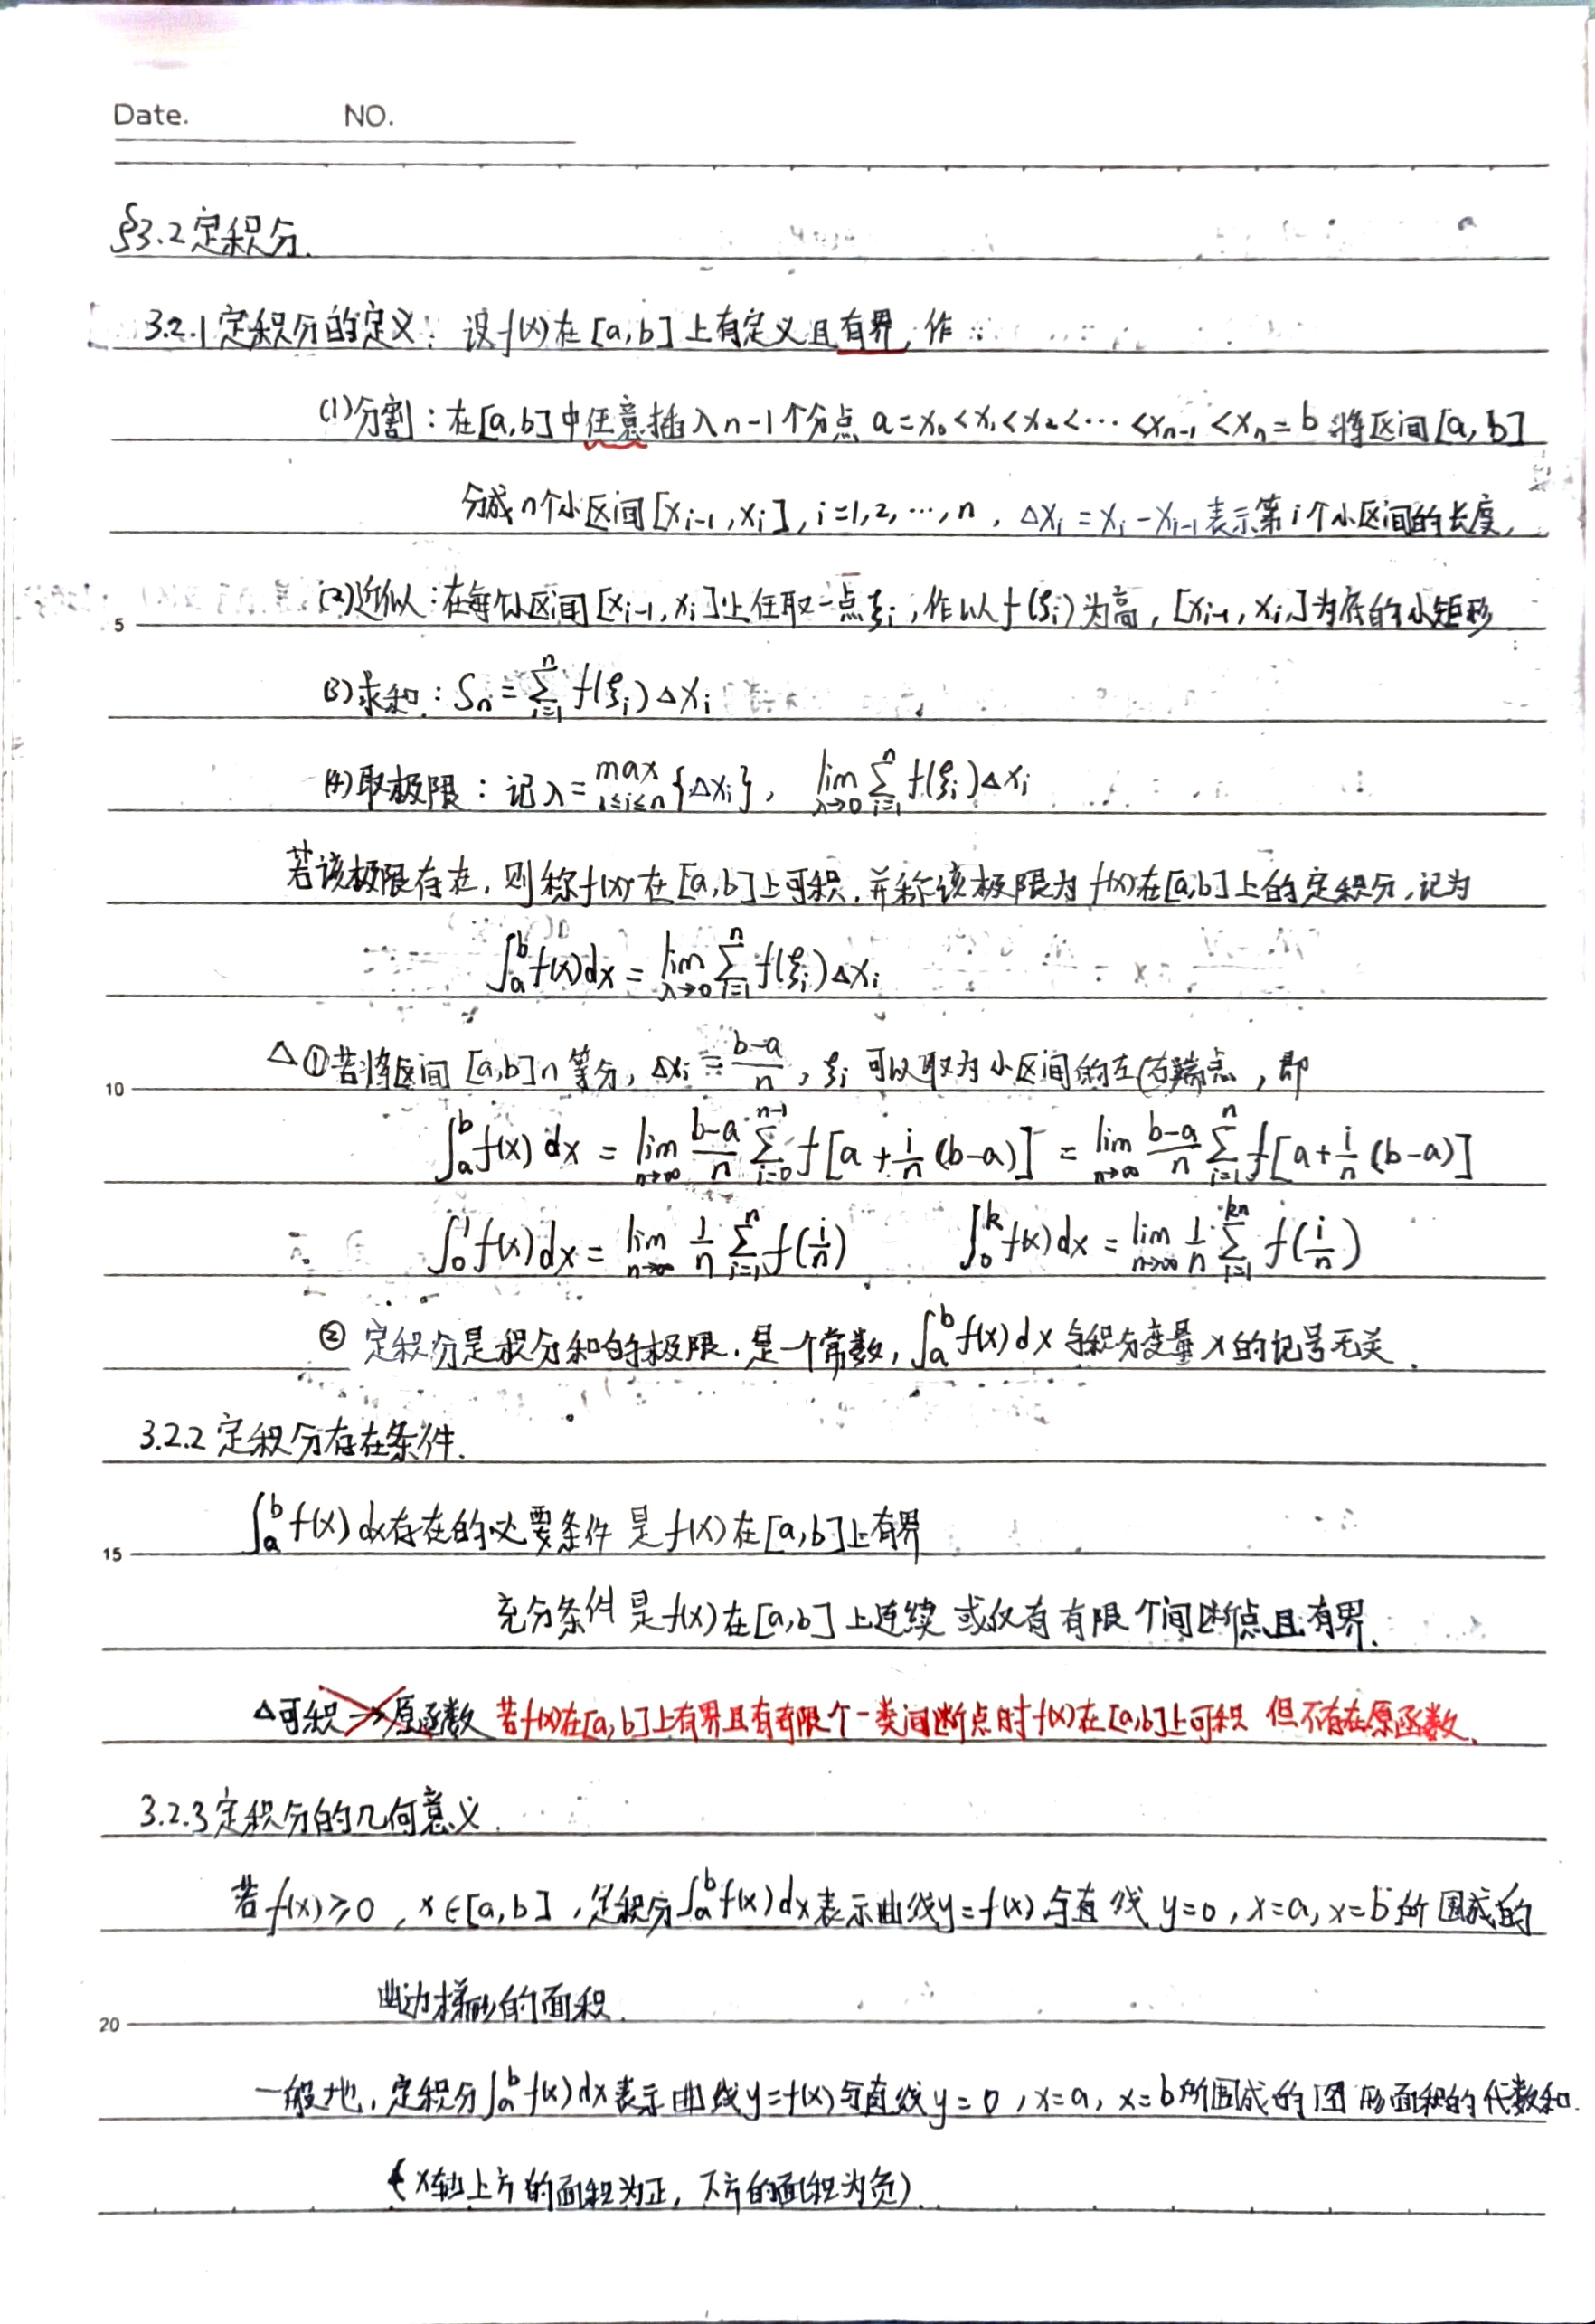 Date. NO.
§3.2 定积分.
3.2.1 定积分的定义: 设f(x)在[a,b]上有定义且有界,作
(1)分割:在[a,b]中任意插入n-1个分点 a=x₀<x₁<x₂<…<xₙ₋₁<xₙ=b 将区间[a,b]
分成n个小区间[xᵢ₋₁,xᵢ], i=1,2,…,n, Δxᵢ=xᵢ-xᵢ₋₁表示第i个小区间的长度,
5 (2)近似:在每个小区间[xᵢ₋₁,xᵢ]上任取一点ξᵢ,作以f(ξᵢ)为高,[xᵢ₋₁,xᵢ]为底的小矩形
(3)求和: Sₙ=∑_{i=1}^{n} f(ξᵢ)Δxᵢ
(4)取极限: 记λ=max_{1≤i≤n}{Δxᵢ}, lim_{λ→0} ∑_{i=1}^{n} f(ξᵢ)Δxᵢ
若该极限存在,则称f(x)在[a,b]上可积,并称该极限为f(x)在[a,b]上的定积分,记为
∫_a^b f(x)dx = lim_{λ→0} ∑_{i=1}^{n} f(ξᵢ)Δxᵢ
10 Δ①若将区间[a,b]n等分, Δxᵢ=\frac{b-a}{n}, ξᵢ可以取为小区间的左(右)端点,即
∫_a^b f(x)dx = lim_{n→∞} \frac{b-a}{n} ∑_{i=0}^{n-1} f[a+\frac{i}{n}(b-a)] = lim_{n→∞} \frac{b-a}{n} ∑_{i=1}^{n} f[a+\frac{i}{n}(b-a)]
∫_0^1 f(x)dx = lim_{n→∞} \frac{1}{n} ∑_{i=1}^{n} f(\frac{i}{n}) ∫_0^k f(x)dx = lim_{n→∞} \frac{1}{n} ∑_{i=1}^{kn} f(\frac{i}{n})
② 定积分是积分和的极限,是一个常数, ∫_a^b f(x)dx与积分变量x的记号无关.
3.2.2 定积分存在条件.
15 ∫_a^b f(x)dx存在的必要条件是f(x)在[a,b]上有界
充分条件是f(x)在[a,b]上连续或仅有有限个间断点且有界.
Δ可积→原函数 若f(x)在[a,b]上有界且有有限个一类间断点时f(x)在[a,b]上可积 但不存在原函数.
3.2.3 定积分的几何意义.
若f(x)≥0, x∈[a,b], 定积分∫_a^b f(x)dx表示曲线y=f(x)与直线 y=0, x=a, x=b所围成的
20 曲边梯形的面积.
一般地,定积分∫_a^b f(x)dx表示曲线y=f(x)与直线y=0, x=a, x=b所围成的图形面积的代数和.
(x轴上方的面积为正,下方的面积为负).